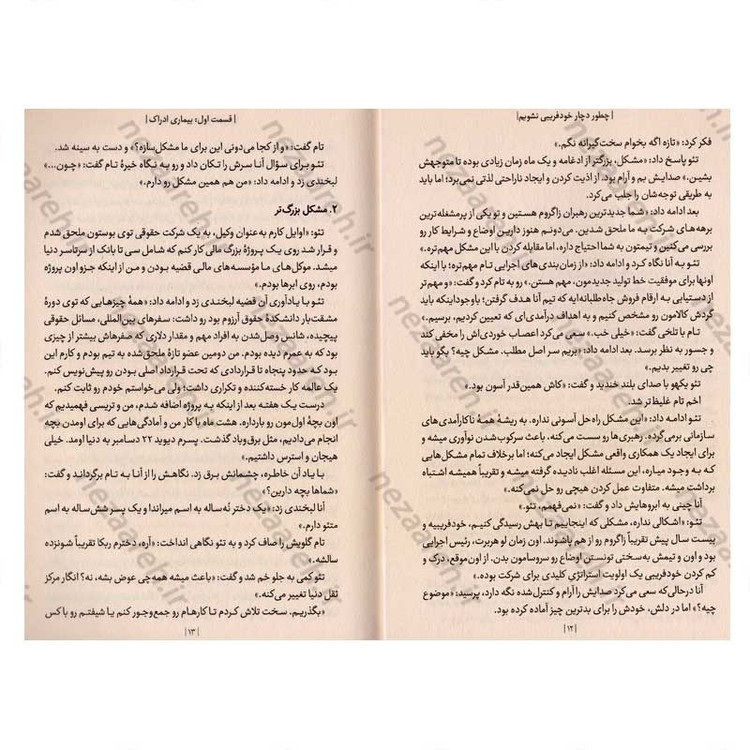 | چطور دچار خودفریبی نشویم |
فکر کرد: «تازه اگه بخوام سخت‌گیرانه نگم.»
تئو پاسخ داد: «مشکل، بزرگتر از ادغامه و یک ماه زمان زیادی بوده تا متوجهش
بشین.» صدایش بم و آرام بود. از اذیت کردن و ایجاد ناراحتی لذتی نمی‌برد؛ اما باید
به طریقی توجه‌شان را جلب می‌کرد.
بعد ادامه داد: «شما جدیدترین رهبران زاگروم هستین و تو یکی از پرمشغله‌ترین
برهه‌های شرکت به ما ملحق شدین. می‌دونم هنوز دارین اوضاع و شرایط کار رو
بررسی می‌کنین و تیمتون به شما احتیاج داره، اما مقابله کردن با این مشکل مهم‌تره.»
تئو به آنا نگاه کرد و ادامه داد: «از زمان‌بندی‌های اجرایی تام مهم‌تره؛ با اینکه
اونها برای موفقیت خط تولید جدیدمون، مهم هستن.» رو به تام کرد و گفت: «و مهم‌تر
از دستیابی به ارقام فروش جاه‌طلبانه‌ایه که تیم آنا هدف گرفتن؛ باوجوداینکه باید
گردش کالامون رو مشخص کنیم و به اهداف درآمدی که تعیین کردیم، برسیم.»
تام با تلخی گفت: «خیلی خب.» سعی می‌کرد اعصاب خوردی‌اش را مخفی کند
و جسور به نظر برسد. بعد ادامه داد: «بریم سر اصل مطلب. مشکل چیه؟ بگو باید
چی رو تغییر بدیم.»
تئو یکهو با صدای بلند خندید و گفت: «کاش همین‌قدر آسون بود.»
اخم تام غلیظ‌تر شد.
تئو ادامه داد: «این مشکل راه‌حل آسونی نداره. به ریشهٔ همهٔ ناکارآمدی‌های
سازمانی برمی‌گرده. رهبری‌ها رو سست می‌کنه، باعث سرکوب‌شدن نوآوری میشه و
برای ایجاد یک همکاری واقعی مشکل ایجاد می‌کنه؛ اما برخلاف تمام مشکل‌هایی
که به وجود میاره، این مسئله اغلب نادیده گرفته میشه و تقریباً همیشه اشتباه
برداشت میشه. متفاوت عمل کردن هیچی رو حل نمی‌کنه.»
آنا چینی به ابروهایش داد و گفت: «نمی‌فهمم، تئو.»
تئو: «اشکالی نداره. مشکلی که اینجاییم تا بهش رسیدگی کنیم، خودفریبیه و
بیست سال پیش تقریباً زاگروم رو از هم پاشوند. اون زمان لو هربرت، رئیس اجرایی
بود و اون و تیمش به‌سختی تونستن اوضاع رو سروسامون بدن. از اون‌موقع، درک و
کم کردن خودفریبی یک اولویت استراتژی کلیدی برای شرکت بوده.»
آنا درحالی‌که سعی می‌کرد صدایش را آرام و کنترل‌شده نگه دارد، پرسید: «موضوع
چیه؟» اما در دلش، خودش را برای بدترین چیز آماده کرده بود.
| ۱۲ |
| قسمت اول: بیماری ادراک |
تام گفت: «و از کجا می‌دونی این برای ما مشکل‌سازه؟» و دست به سینه شد.
تئو برای سؤال آنا سرش را تکان داد و رو به نگاه خیرهٔ تام گفت: «چون...»
لبخندی زد و ادامه داد: «من هم همین مشکل رو دارم.»
۲. مشکل بزرگ‌تر
تئو: «اوایل کارم به عنوان وکیل، به یک شرکت حقوقی توی بوستون ملحق شدم
و قرار شد روی یک پروژهٔ بزرگ مالی کار کنم که شامل سی تا بانک از سرتاسر دنیا
میشد. موکل‌های ما مؤسسه‌های مالی قضیه بودن و من از اینکه جزو اون پروژه
بودم، روی ابرها بودم.»
تئو با یادآوری آن قضیه لبخندی زد و ادامه داد: «همهٔ چیزهایی که توی دورهٔ
مشقت‌بار دانشکدهٔ حقوق آرزوم بود رو داشت: سفرهای بین‌المللی، مسائل حقوقی
پیچیده، شانس وصل‌شدن به افراد مهم و مقدار دلاری که صفرهاش بیشتر از چیزی
بود که به عمرم دیده بودم. من دومین عضو تازهٔ ملحق شده به تیم بودم و کارم این
بود که حدود پنجاه تا قراردادی که تحت قرارداد اصلی بودن رو پیش‌نویس کنم.
یک عالمه کار خسته‌کننده و تکراری داشت؛ ولی می‌خواستم خودم رو ثابت کنم.
درست یک هفته بعد از اینکه به پروژه اضافه شدم، من و تریسی فهمیدیم که
اون بچهٔ اول‌مون رو بارداره. هشت ماه با کار من و آمادگی‌هایی که برای اومدن بچه
انجام می‌دادیم، مثل برق‌وباد گذشت. پسرم دیوید ۲۲ دسامبر به دنیا اومد. خیلی
هیجان و استرس داشتیم.»
با یاد آن خاطره، چشمانش برق زد. نگاهش را از آنا به تام برگرداند و گفت:
«شماها بچه دارین؟»
آنا لبخندی زد: «یک دختر نُه‌ساله به اسم میراندا و یک پسر شش‌ساله به اسم
متئو دارم.»
تام گلویش را صاف کرد و به تئو نگاهی انداخت: «آره، دخترم ربکا تقریباً شونزده
سالشه.»
تئو کمی به جلو خم شد و گفت: «باعث میشه همه‌چی عوض بشه، نه؟ انگار مرکز
ثقل دنیا تغییر می‌کنه.»
«بگذریم. سخت تلاش کردم تا کارهام رو جمع‌وجور کنم یا شیفتم رو با کس
| ۱۳ |
nezaareh.ir